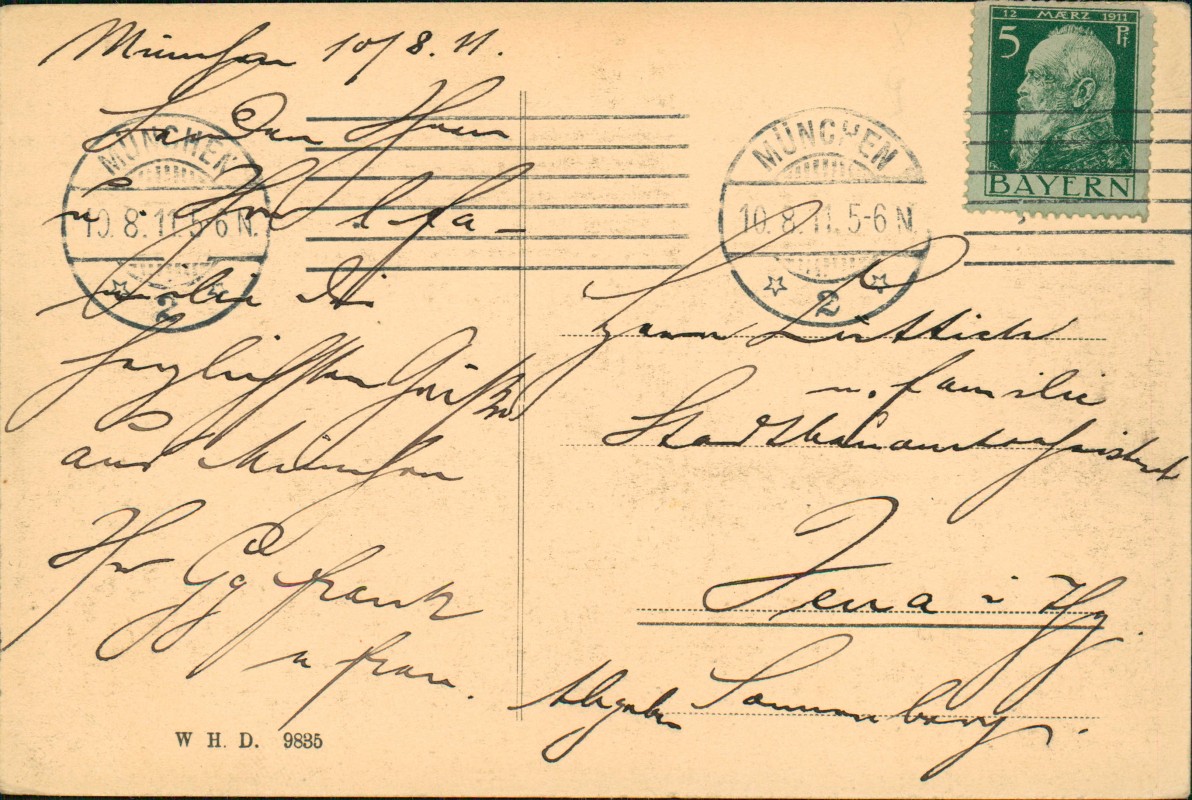 München 10/8.11.
Ihnen
u.
Familie die
herzlichsten Grüße
aus München
Ihr Gg Frank
u Frau.
W. H. D. 9835
12 MÆRZ 1911
5 Pf
BAYERN
MÜNCHEN
10.8.11.5-6 N.
2
MÜNCHEN
10.8.11.5-6 N.
2
Herrn Lüttich
u. Familie
Jena i Thg.
Abgeber Sonneberg.